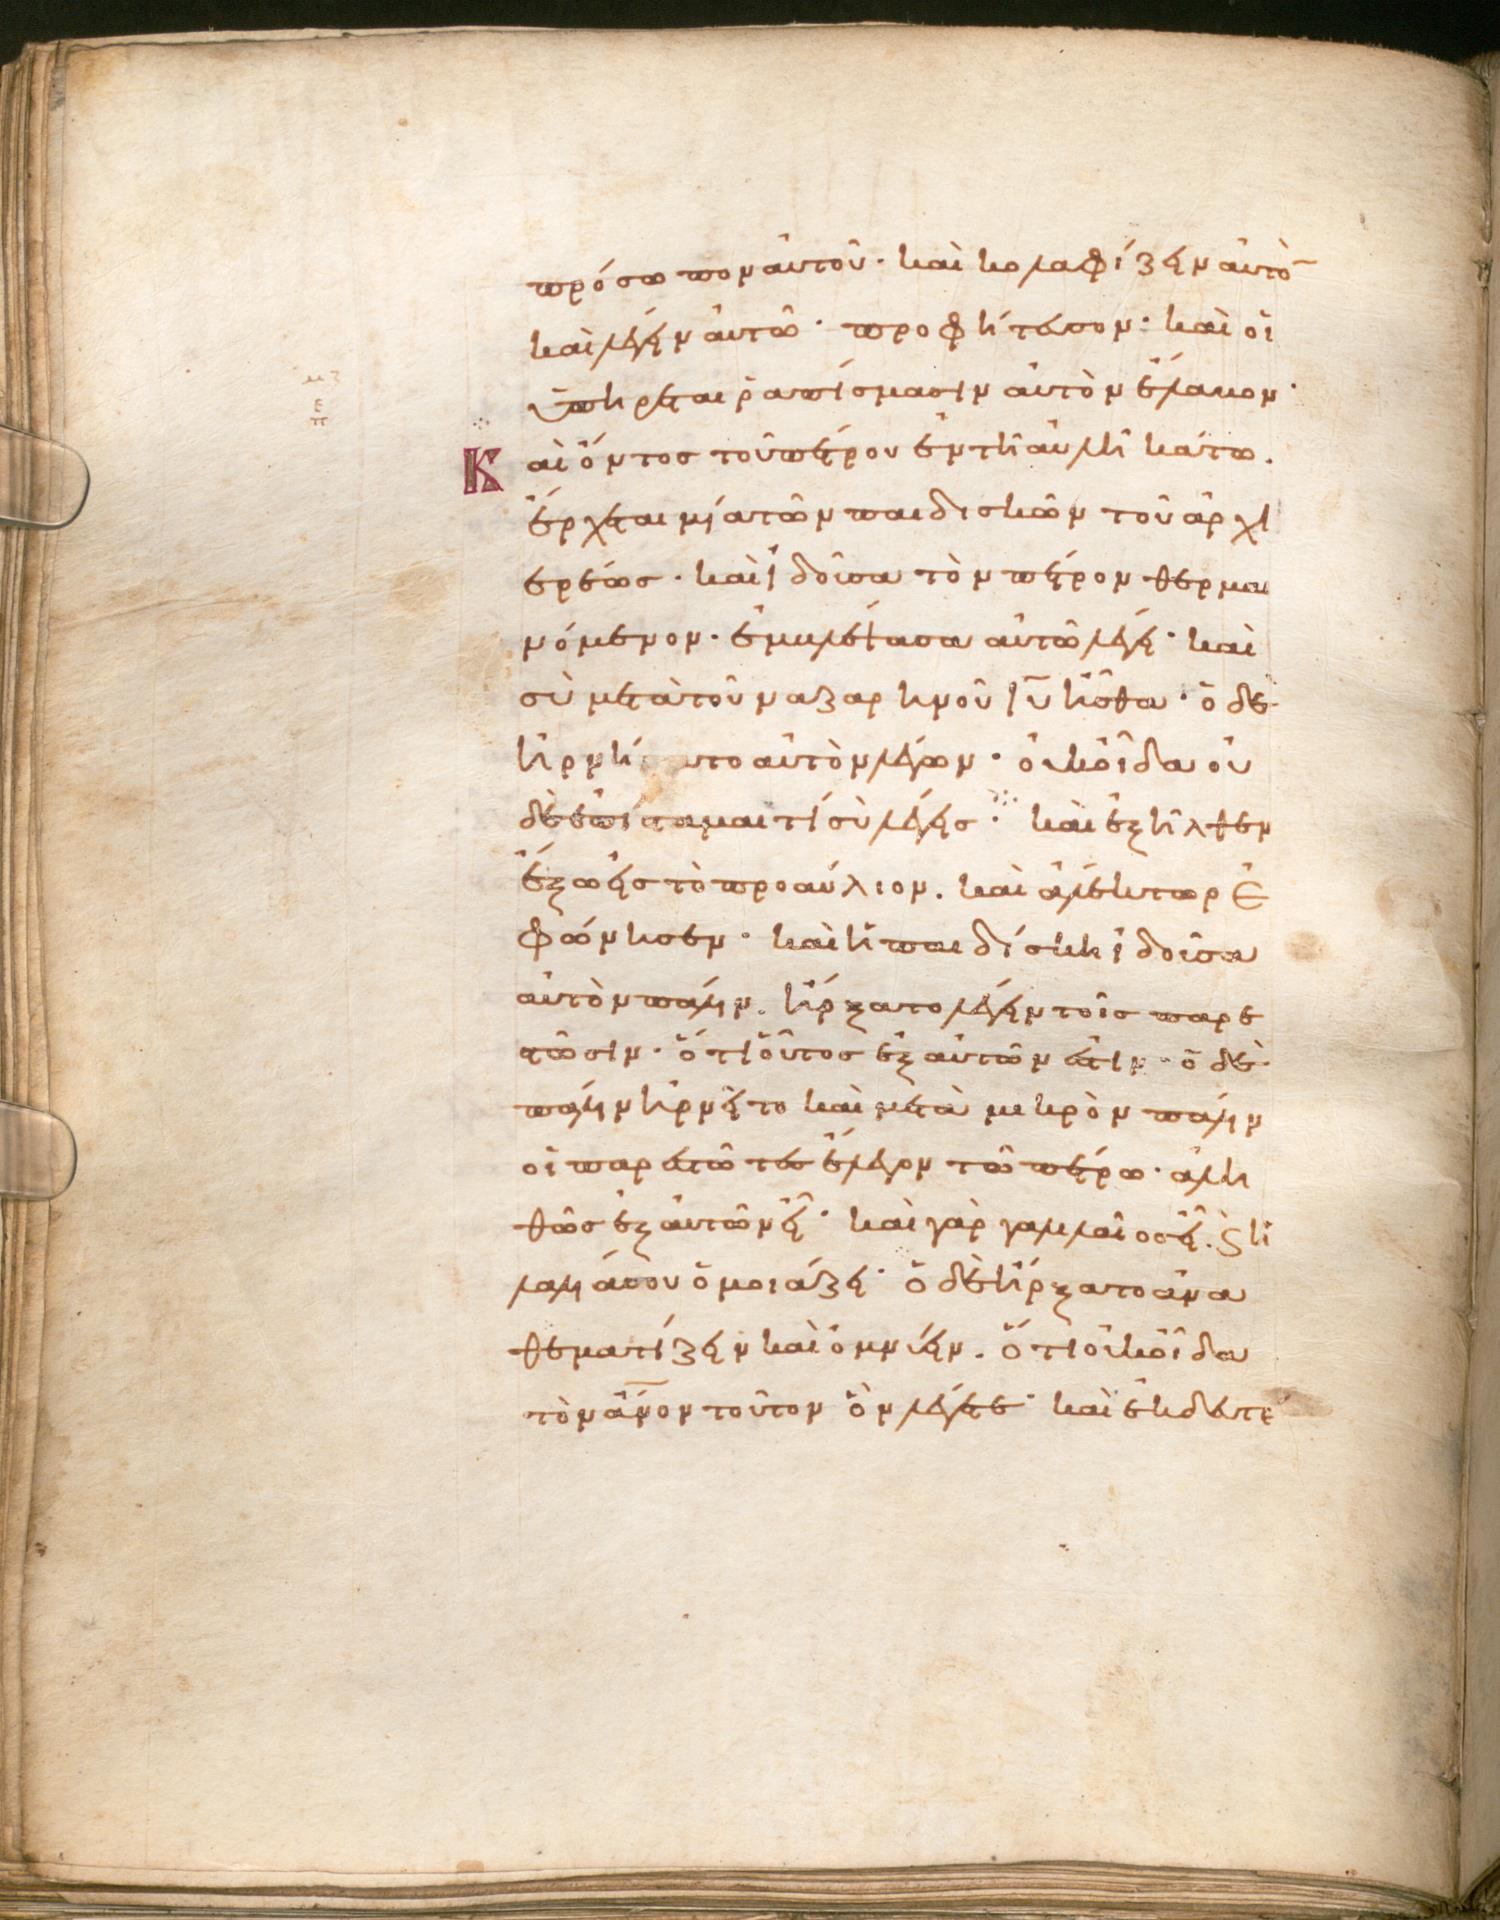 πρόσωπον αὐτοῦ· καὶ κολαφίζειν αὐτὸ‾
καὶ λέγειν αὐτῶ· προφήτευσον· καὶ οἱ
ὑπηρέται ῥαπίσμασιν αὐτὸν ἔλαβον·
Καὶ ὄντος τοῦ πέτρου ἐν τῆ αὐλῆ κάτω.
ἔρχεται μία τῶν παιδισκῶν τοῦ ἀρχι
ερέως· καὶ ἰδοῦσα τὸν πέτρον θερμαι
νόμενον· ἐμβλέψασα αὐτῶ λέγει· καὶ
σὺ μετὰ τοῦ ναζαρηνοῦ ἰῦ ἦσθα· ὁ δὲ
ἠρνή ατο αὐτὸν λέγων· οὐκ οἶδα οὐ
δὲ ἐπίσταμαι τί σὺ λέγεις· καὶ ἐξῆλθεν
ἔξω εἰς τὸ προαύλιον. καὶ ἀλέκτωρ ἐ
φώνησεν· καὶ ἡ παιδίσκη ἰδοῦσα
αὐτὸν πάλιν. ἤρξατο λέγειν τοῖς παρε
στῶσιν· ὅτι οὗτος ἐξ αὐτῶν ἐστιν· ὁ δὲ
πάλιν ἠρνεῖτο καὶ μετὰ μικρὸν πάλιν
οἱ παρεστῶτες ἔλεγον τῶ πέτρω· ἀλη
θῶς ἐξ αὐτῶν εἶ· καὶ γὰρ γαλιλαῖος εἶ. ϗ ἡ
λαλιά σου ὁμοιάζει· ὁ δὲ ἤρξατο ἀνα
θεματίζειν καὶ ὀμνύειν. ὅτι οὐκ οἶδα
τὸν ἄνον τοῦτον ὃν λέγετε· καὶ ἐκ δευτέ